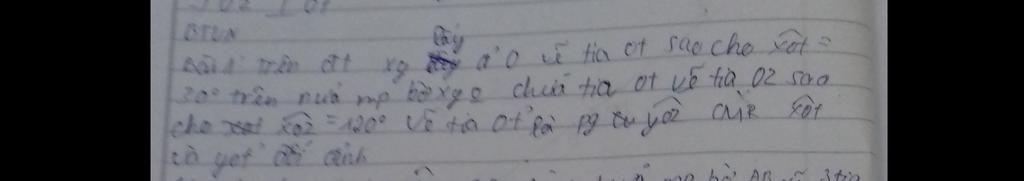 BTVN
Bài 1 trên đt xy lấy đ' O vẽ tia ot sao cho xôt =
30° trên nửa mp bờ xy chứa tia ot vẽ tia oz sao
cho xoz = 120° vẽ tia ot' là pg củ yoz CMR xôt
và yot' đối đỉnh
bờ AB vẽ 3 tia